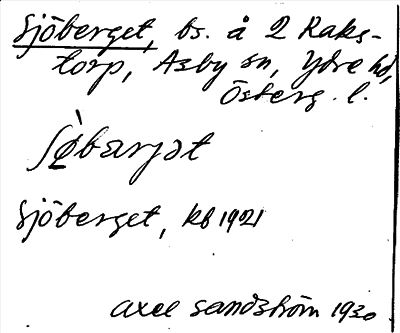 Sjöberget, bs. å 2 Raks-
torp, Asby sn, Ydre hd,
Österg. l.
ʃø̀bærjət
Sjöberget, kb 1921
Axel Sandström 1930